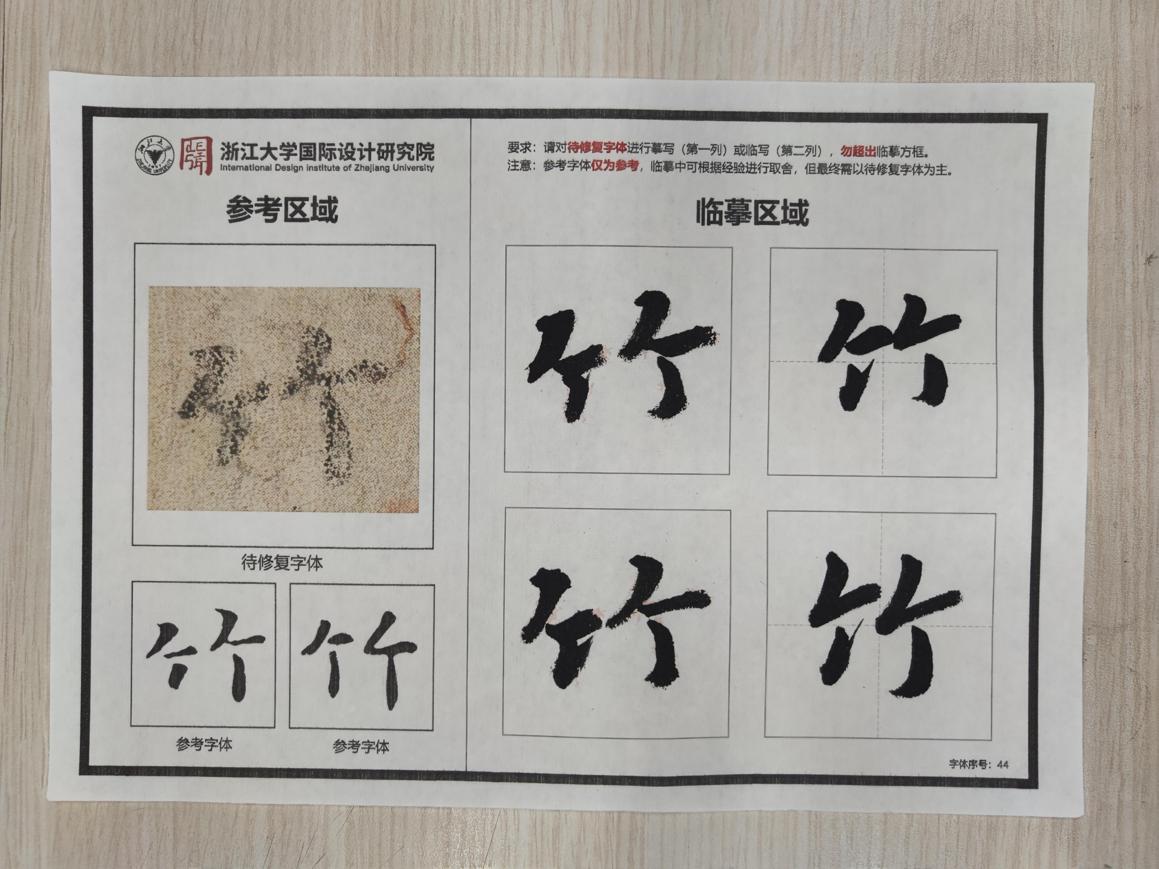 浙江大学国际设计研究院
International Design Institute of Zhejiang University
参考区域
竹
待修复字体
竹 竹
参考字体 参考字体
要求：请对待修复字体进行摹写（第一列）或临写（第二列），勿超出临摹方框。
注意：参考字体仅为参考，临摹中可根据经验进行取舍，但最终需以待修复字体为主。
临摹区域
竹 竹
竹 竹
字体序号：44